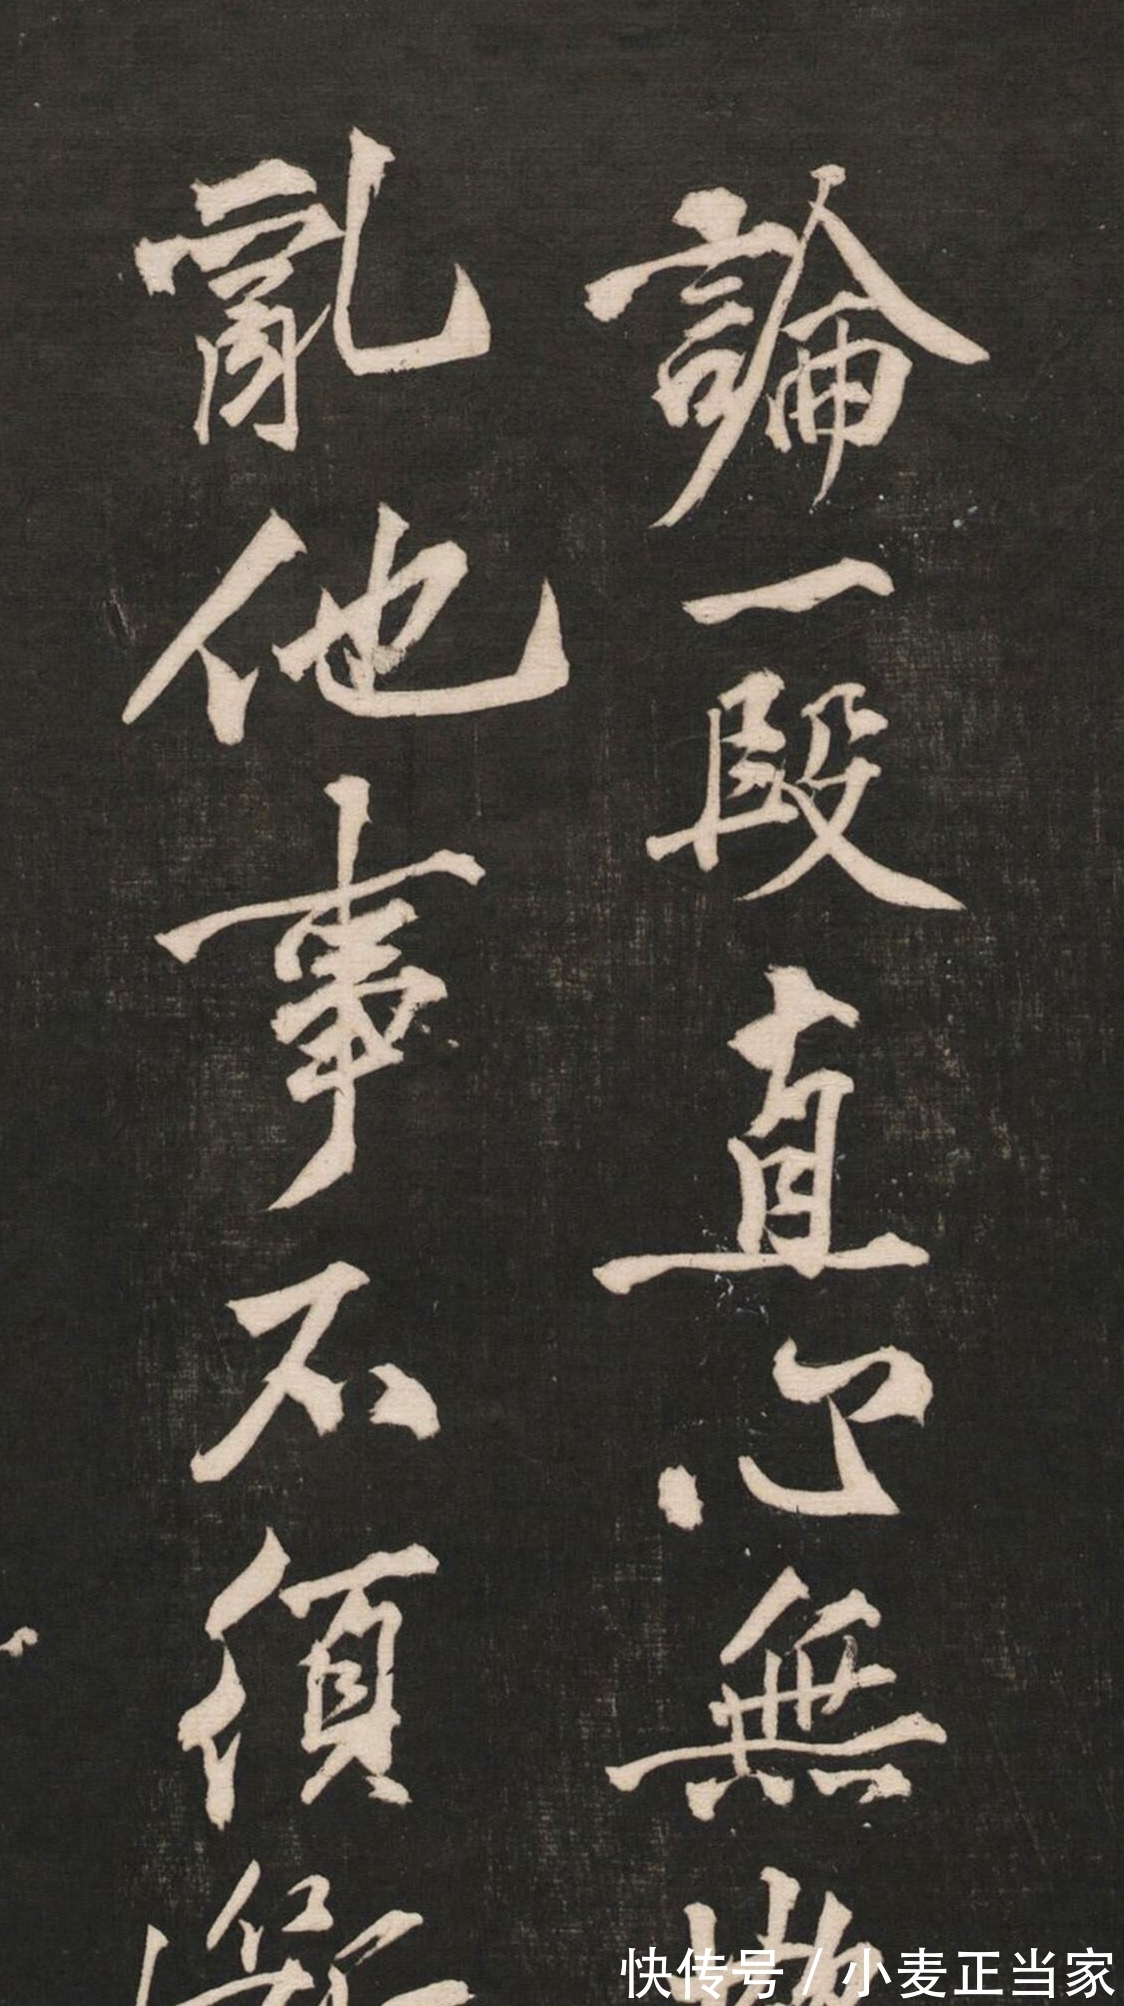 論一段直心無
亂他事不須
快传号 / 小麦正当家